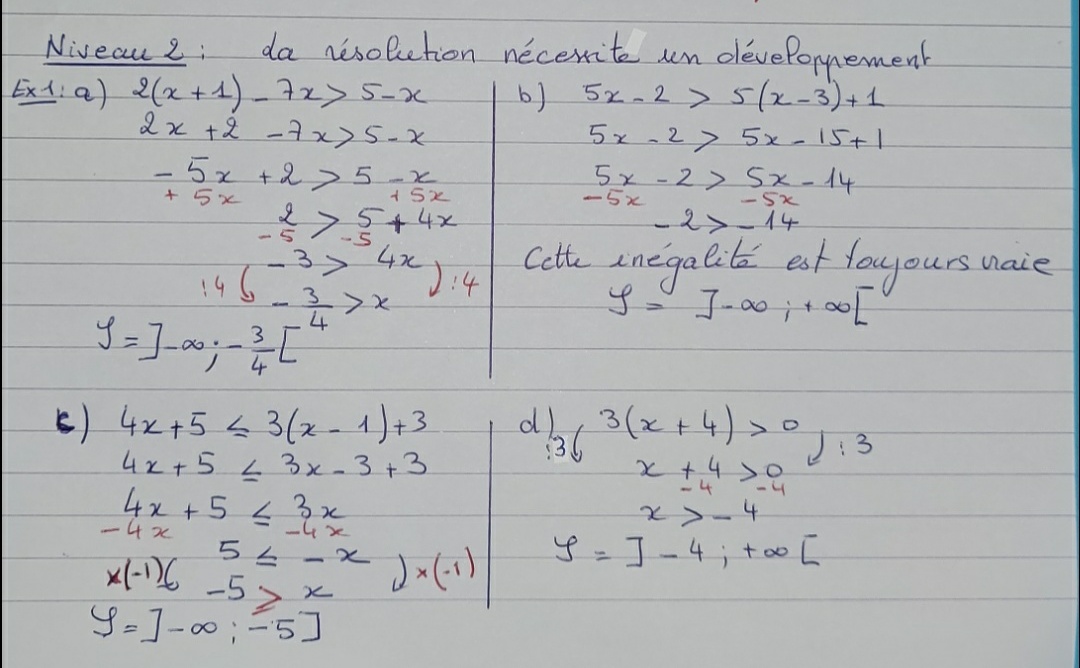 Niveau 2 : La résolution nécessite un développement
Ex 1: a) 2(x + 1) - 7x > 5 - x
2x + 2 - 7x > 5 - x
- 5x + 2 > 5 - x
+ 5x + 5x
2 > 5 + 4x
- 5 - 5
- 3 > 4x
:4 :4
- 3/4 > x
S = ]-∞ ; - 3/4 [
b) 5x - 2 > 5(x - 3) + 1
5x - 2 > 5x - 15 + 1
5x - 2 > 5x - 14
- 5x - 5x
- 2 > - 14
Cette inégalité est toujours vraie
S = ]-∞ ; +∞[
c) 4x + 5 ≤ 3(x - 1) + 3
4x + 5 ≤ 3x - 3 + 3
4x + 5 ≤ 3x
- 4x - 4x
5 ≤ - x
x(-1) x(-1)
-5 ≥ x
S = ]-∞ ; -5]
d) 3(x + 4) > 0
:3 :3
x + 4 > 0
- 4 - 4
x > - 4
S = ] - 4 ; +∞ [